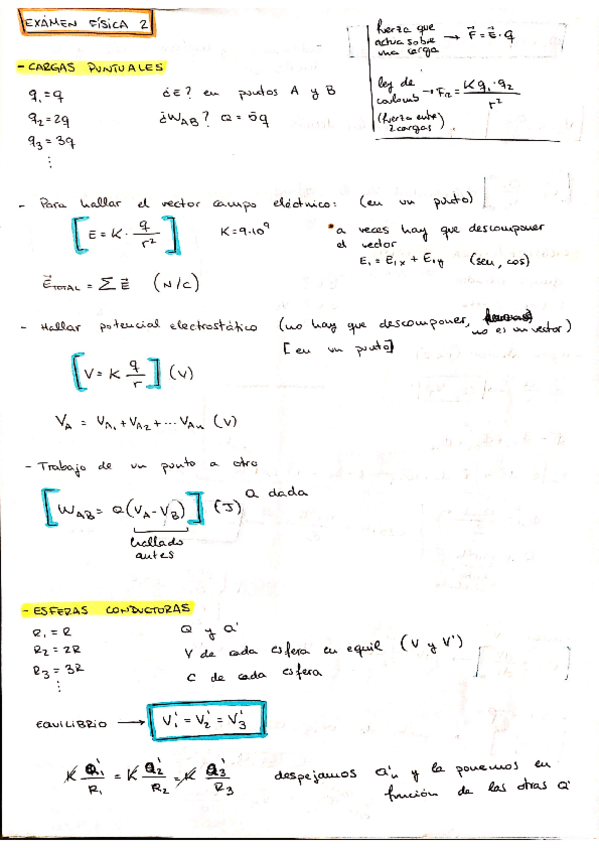 EXÁMEN FÍSICA 2
fuerza que
actua sobre → F⃗ = E⃗ · q
una carga
ley de
coulomb → F₁₂ = K q₁ · q₂ / r²
(fuerza entre
2 cargas)
- CARGAS PUNTUALES
q₁ = q
¿E? en puntos A y B
q₂ = 2q
¿W_AB? Q = 5q
q₃ = 3q
⋮
- Para hallar el vector campo eléctrico: (en un punto)
[E = K · q / r²]
K = 9·10⁹
* a veces hay que descomponer
el vector
E₁ = E₁x + E₁y (sen, cos)
E⃗_TOTAL = Σ E⃗ (N/C)
- Hallar potencial electrostático (no hay que descomponer,
no es un vector)
[en un punto]
[V = K q / r] (V)
V_A = V_A₁ + V_A₂ + ... V_An (V)
- Trabajo de un punto a otro
[W_AB = Q(V_A - V_B)] (J) Q dada
hallado
antes
- ESFERAS CONDUCTORAS
R₁ = R
Q y Q'
R₂ = 2R
V de cada esfera en equil (V y V')
R₃ = 3R
C de cada esfera
⋮
EQUILIBRIO → V₁' = V₂' = V₃'
K Q₁' / R₁ = K Q₂' / R₂ = K Q₃' / R₃
despejamos Q'n y la ponemos en
función de las otras Q'